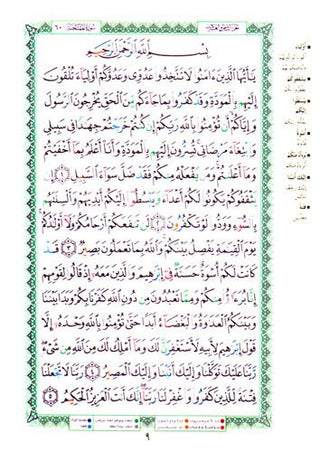 سُورَةُ الْمُمْتَحنَة ٦٠
بِسْمِ ٱللَّهِ ٱلرَّحْمَٰنِ ٱلرَّحِيمِ
يَٰٓأَيُّهَا ٱلَّذِينَ ءَامَنُوا۟ لَا تَتَّخِذُوا۟ عَدُوِّى وَعَدُوَّكُمْ أَوْلِيَآءَ تُلْقُونَ
إِلَيْهِم بِٱلْمَوَدَّةِ وَقَدْ كَفَرُوا۟ بِمَا جَآءَكُم مِّنَ ٱلْحَقِّ يُخْرِجُونَ ٱلرَّسُولَ
وَإِيَّاكُمْ أَن تُؤْمِنُوا۟ بِٱللَّهِ رَبِّكُمْ إِن كُنتُمْ خَرَجْتُمْ جِهَٰدًا فِى سَبِيلِى
وَٱبْتِغَآءَ مَرْضَاتِى تُسِرُّونَ إِلَيْهِم بِٱلْمَوَدَّةِ وَأَنَا۠ أَعْلَمُ بِمَآ أَخْفَيْتُمْ
وَمَآ أَعْلَنتُمْ وَمَن يَفْعَلْهُ مِنكُمْ فَقَدْ ضَلَّ سَوَآءَ ٱلسَّبِيلِ ١ إِن
يَثْقَفُوكُمْ يَكُونُوا۟ لَكُمْ أَعْدَآءً وَيَبْسُطُوٓا۟ إِلَيْكُمْ أَيْدِيَهُمْ وَأَلْسِنَتَهُم
بِٱلسُّوٓءِ وَوَدُّوا۟ لَوْ تَكْفُرُونَ ٢ لَن تَنفَعَكُمْ أَرْحَامُكُمْ وَلَآ أَوْلَٰدُكُمْ
يَوْمَ ٱلْقِيَٰمَةِ يَفْصِلُ بَيْنَكُمْ وَٱللَّهُ بِمَا تَعْمَلُونَ بَصِيرٌ ٣ قَدْ
كَانَتْ لَكُمْ أُسْوَةٌ حَسَنَةٌ فِىٓ إِبْرَٰهِيمَ وَٱلَّذِينَ مَعَهُۥٓ إِذْ قَالُوا۟ لِقَوْمِهِمْ
إِنَّا بُرَءَٰٓؤُا۟ مِنكُمْ وَمِمَّا تَعْبُدُونَ مِن دُونِ ٱللَّهِ كَفَرْنَا بِكُمْ وَبَدَا بَيْنَنَا
وَبَيْنَكُمُ ٱلْعَدَٰوَةُ وَٱلْبَغْضَآءُ أَبَدًا حَتَّىٰ تُؤْمِنُوا۟ بِٱللَّهِ وَحْدَهُۥٓ إِلَّا
قَوْلَ إِبْرَٰهِيمَ لِأَبِيهِ لَأَسْتَغْفِرَنَّ لَكَ وَمَآ أَمْلِكُ لَكَ مِنَ ٱللَّهِ مِن شَىْءٍ
رَّبَّنَا عَلَيْكَ تَوَكَّلْنَا وَإِلَيْكَ أَنَبْنَا وَإِلَيْكَ ٱلْمَصِيرُ ٤ رَبَّنَا لَا تَجْعَلْنَا
فِتْنَةً لِّلَّذِينَ كَفَرُوا۟ وَٱغْفِرْ لَنَا رَبَّنَآ إِنَّكَ أَنتَ ٱلْعَزِيزُ ٱلْحَكِيمُ ٥
٩